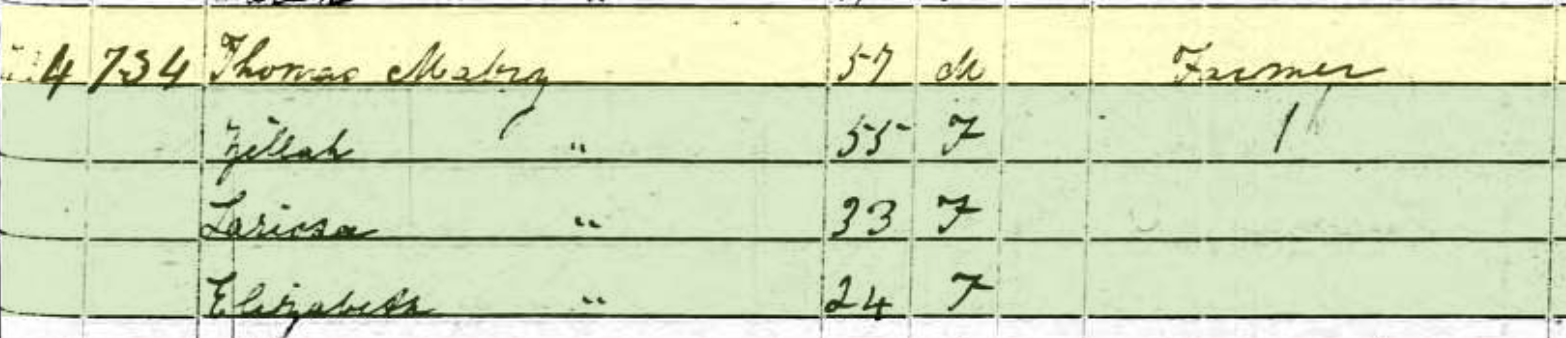 4 734 Thomas Mabry 57 M Farmer
Zillah " 55 F 1
Laricsa " 33 F
Elizabeth " 24 F